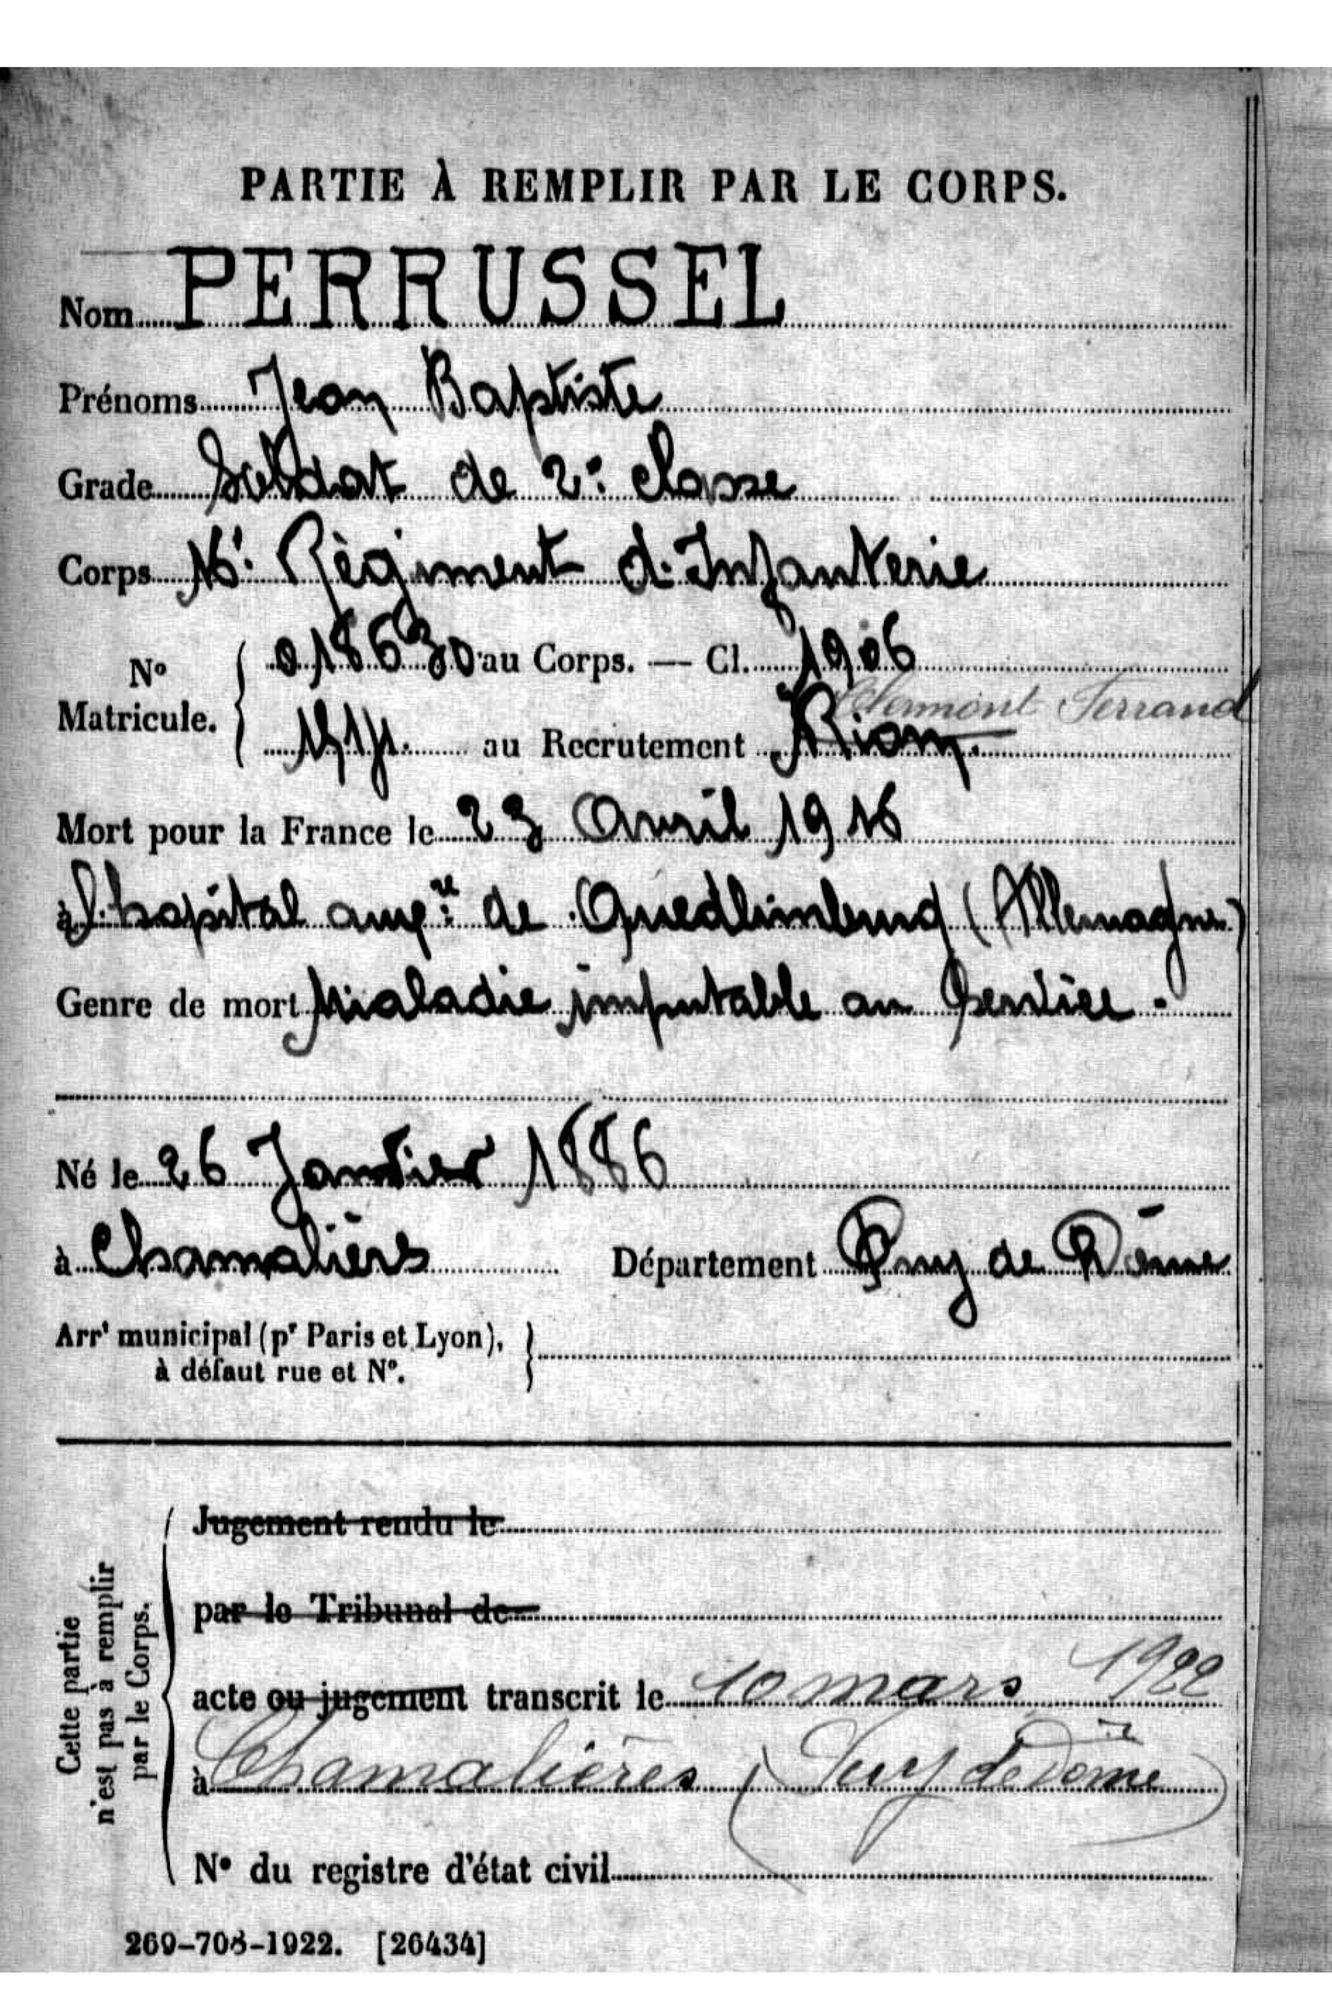 PARTIE À REMPLIR PAR LE CORPS.
Nom PERRUSSEL
Prénoms Jean Baptiste
Grade Soldat de 2e classe
Corps 16e Régiment d'Infanterie
No Matricule. 018630 au Corps. — Cl. 1906
Clermont Ferrand
au Recrutement Riom.
Mort pour la France le 23 Avril 1916
à l'hopital de Quedlimburg (Allemagne)
Genre de mort Maladie imputable au Service.
Né le 26 Janvier 1886
à Chamalières Département Puy de Dôme
Arrt municipal (pr Paris et Lyon),
à défaut rue et No.
Cette partie
n'est pas à remplir
par le Corps.
Jugement rendu le
par le Tribunal de
acte ou jugement transcrit le 10 mars 1922
à Chamalières (Puy de Dôme)
No du registre d'état civil
269-708-1922. [26434]